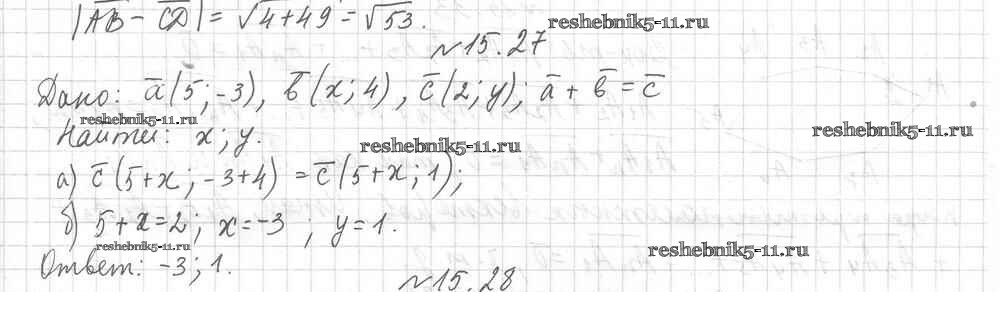 |AB̅ - CD̅| = √4+49 = √53.
reshebnik5-11.ru
№15.27
Дано: a̅(5;-3), b̅(x;4), c̅(2;y); a̅ + b̅ = c̅
reshebnik5-11.ru
reshebnik5-11.ru
Найти: x; y.
reshebnik5-11.ru
а) c̅(5+x; -3+4) = c̅(5+x; 1);
б) 5+x=2; x=-3; y=1.
reshebnik5-11.ru
reshebnik5-11.ru
Ответ: -3; 1.
№15.28